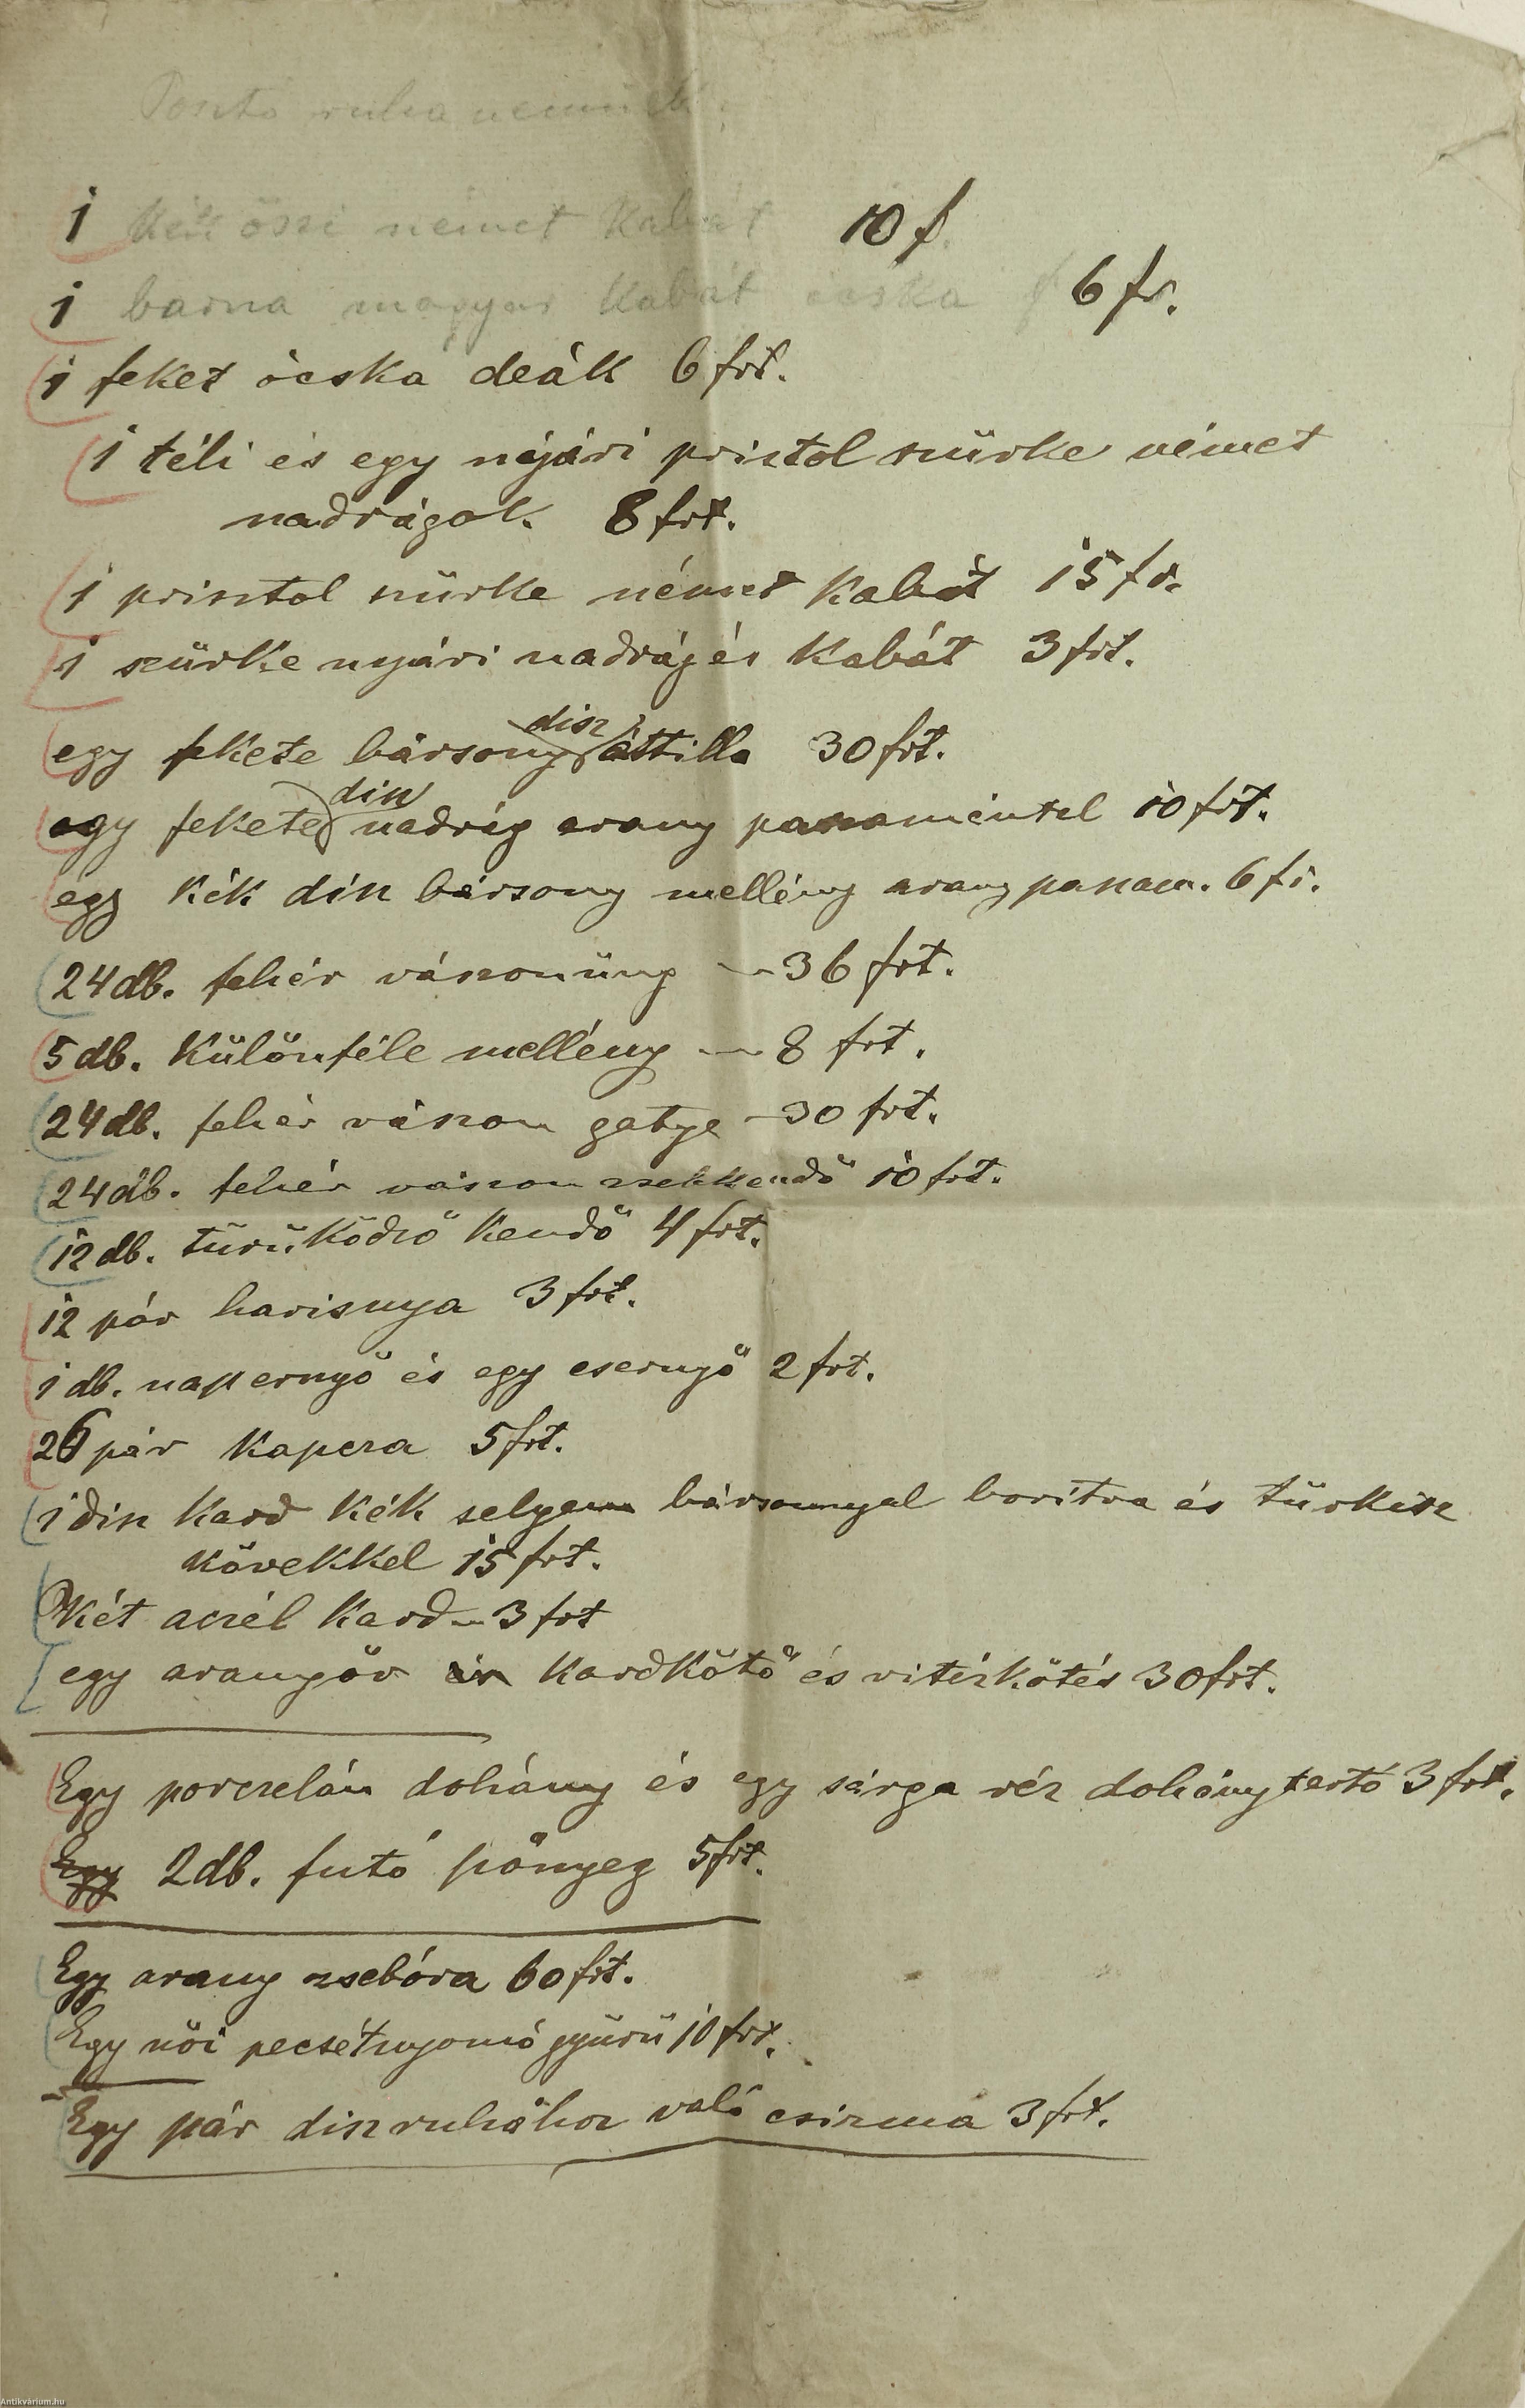 Posztó ruha neműek.
1 Kék őszi német Kabát 10 f.
1 barna magyar Kabát ócska 6 fr.
1 feket ócska deák 6 frt.
1 téli és egy nyári prisztol szürke német
nadrágok. 8 frt.
1 prisztol szürke német Kabát 15 fr.
1 szürke nyári nadrág és Kabát 3 frt.
egy fekete bársony disz attilla 30 frt.
egy fekete disz nadrág arany paszomántel 10 frt.
egy Kék disz bársony mellény arany paszom. 6 fr.
24 db. fehér vászonüng 36 frt.
5 db. Különféle mellény 8 frt.
24 db. fehér vászon gatya 30 frt.
24 db. fehér vászon zsebkendő 10 frt.
12 db. türülködző Kendő 4 frt.
12 pár harisnya 3 frt.
1 db. napernyő és egy esernyő 2 frt.
26 pár Kapcza 5 frt.
1 disz Kard Kék selyem bársonnyal borítva és türkisz
kövekkel 15 frt.
Két aczél Kard 3 frt
egy aranyöv és Kardkötő és vitézkötés 30 frt.
Egy porczelán dohány és egy sárga réz dohánytartó 3 frt.
Egy 2 db. futó pőnyeg 5 frt.
Egy arany zsebóra 60 frt.
Egy női pecsétnyomó gyürü 10 frt.
Egy pár diszruhához való csizma 3 frt.
Antikvárium.hu